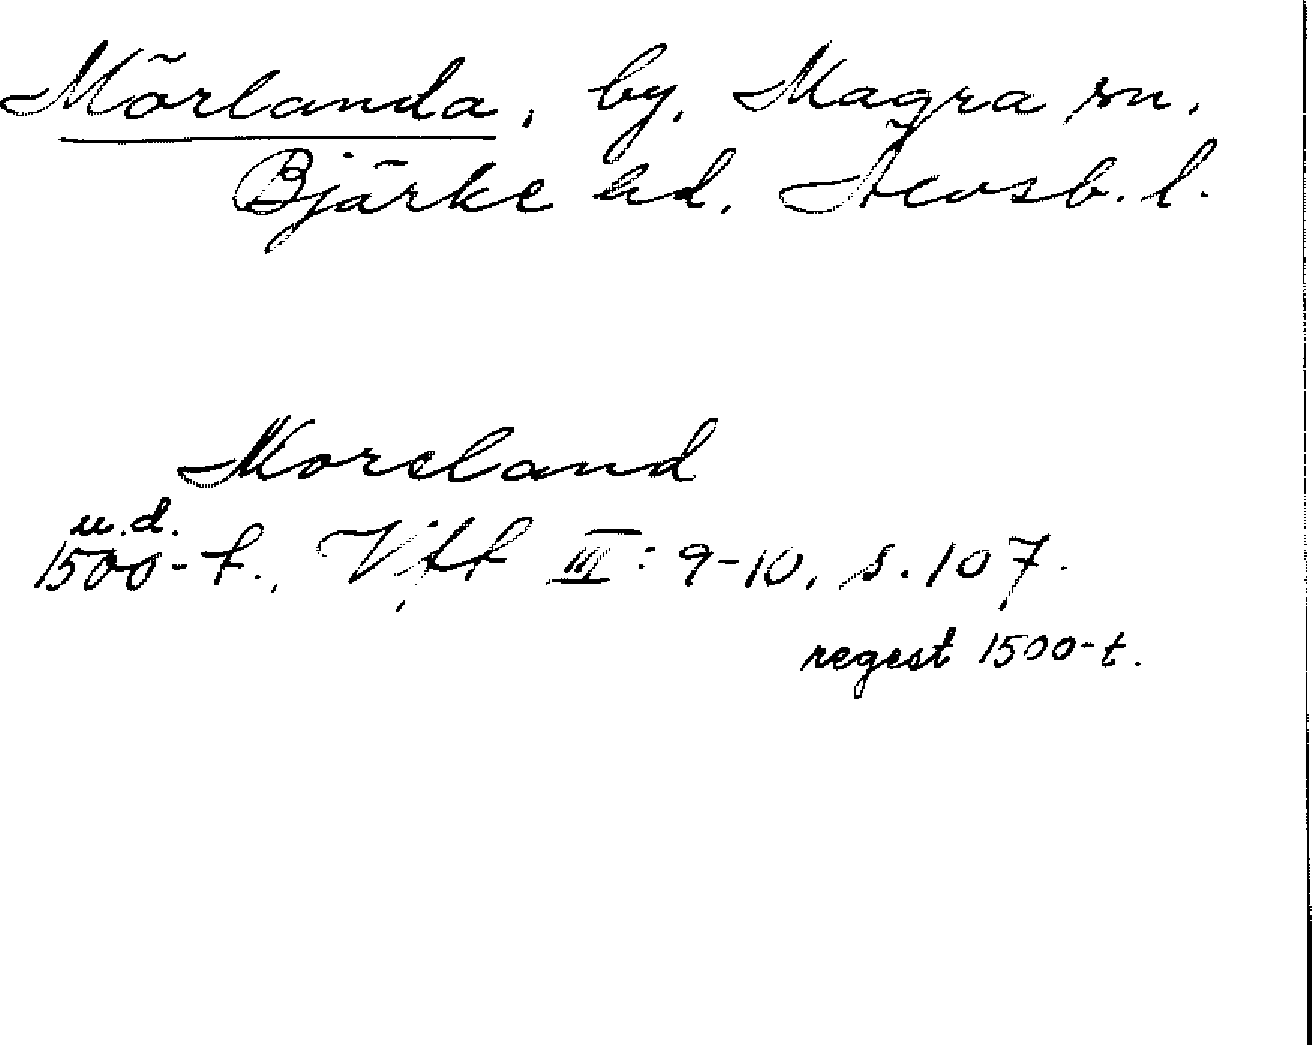 Mörlanda, by, Magra sn.
Bjärke hd. Älvsb. l.
Moreland
u.d.
1500-t., Vft III: 9-10, s. 107.
regest 1500-t.